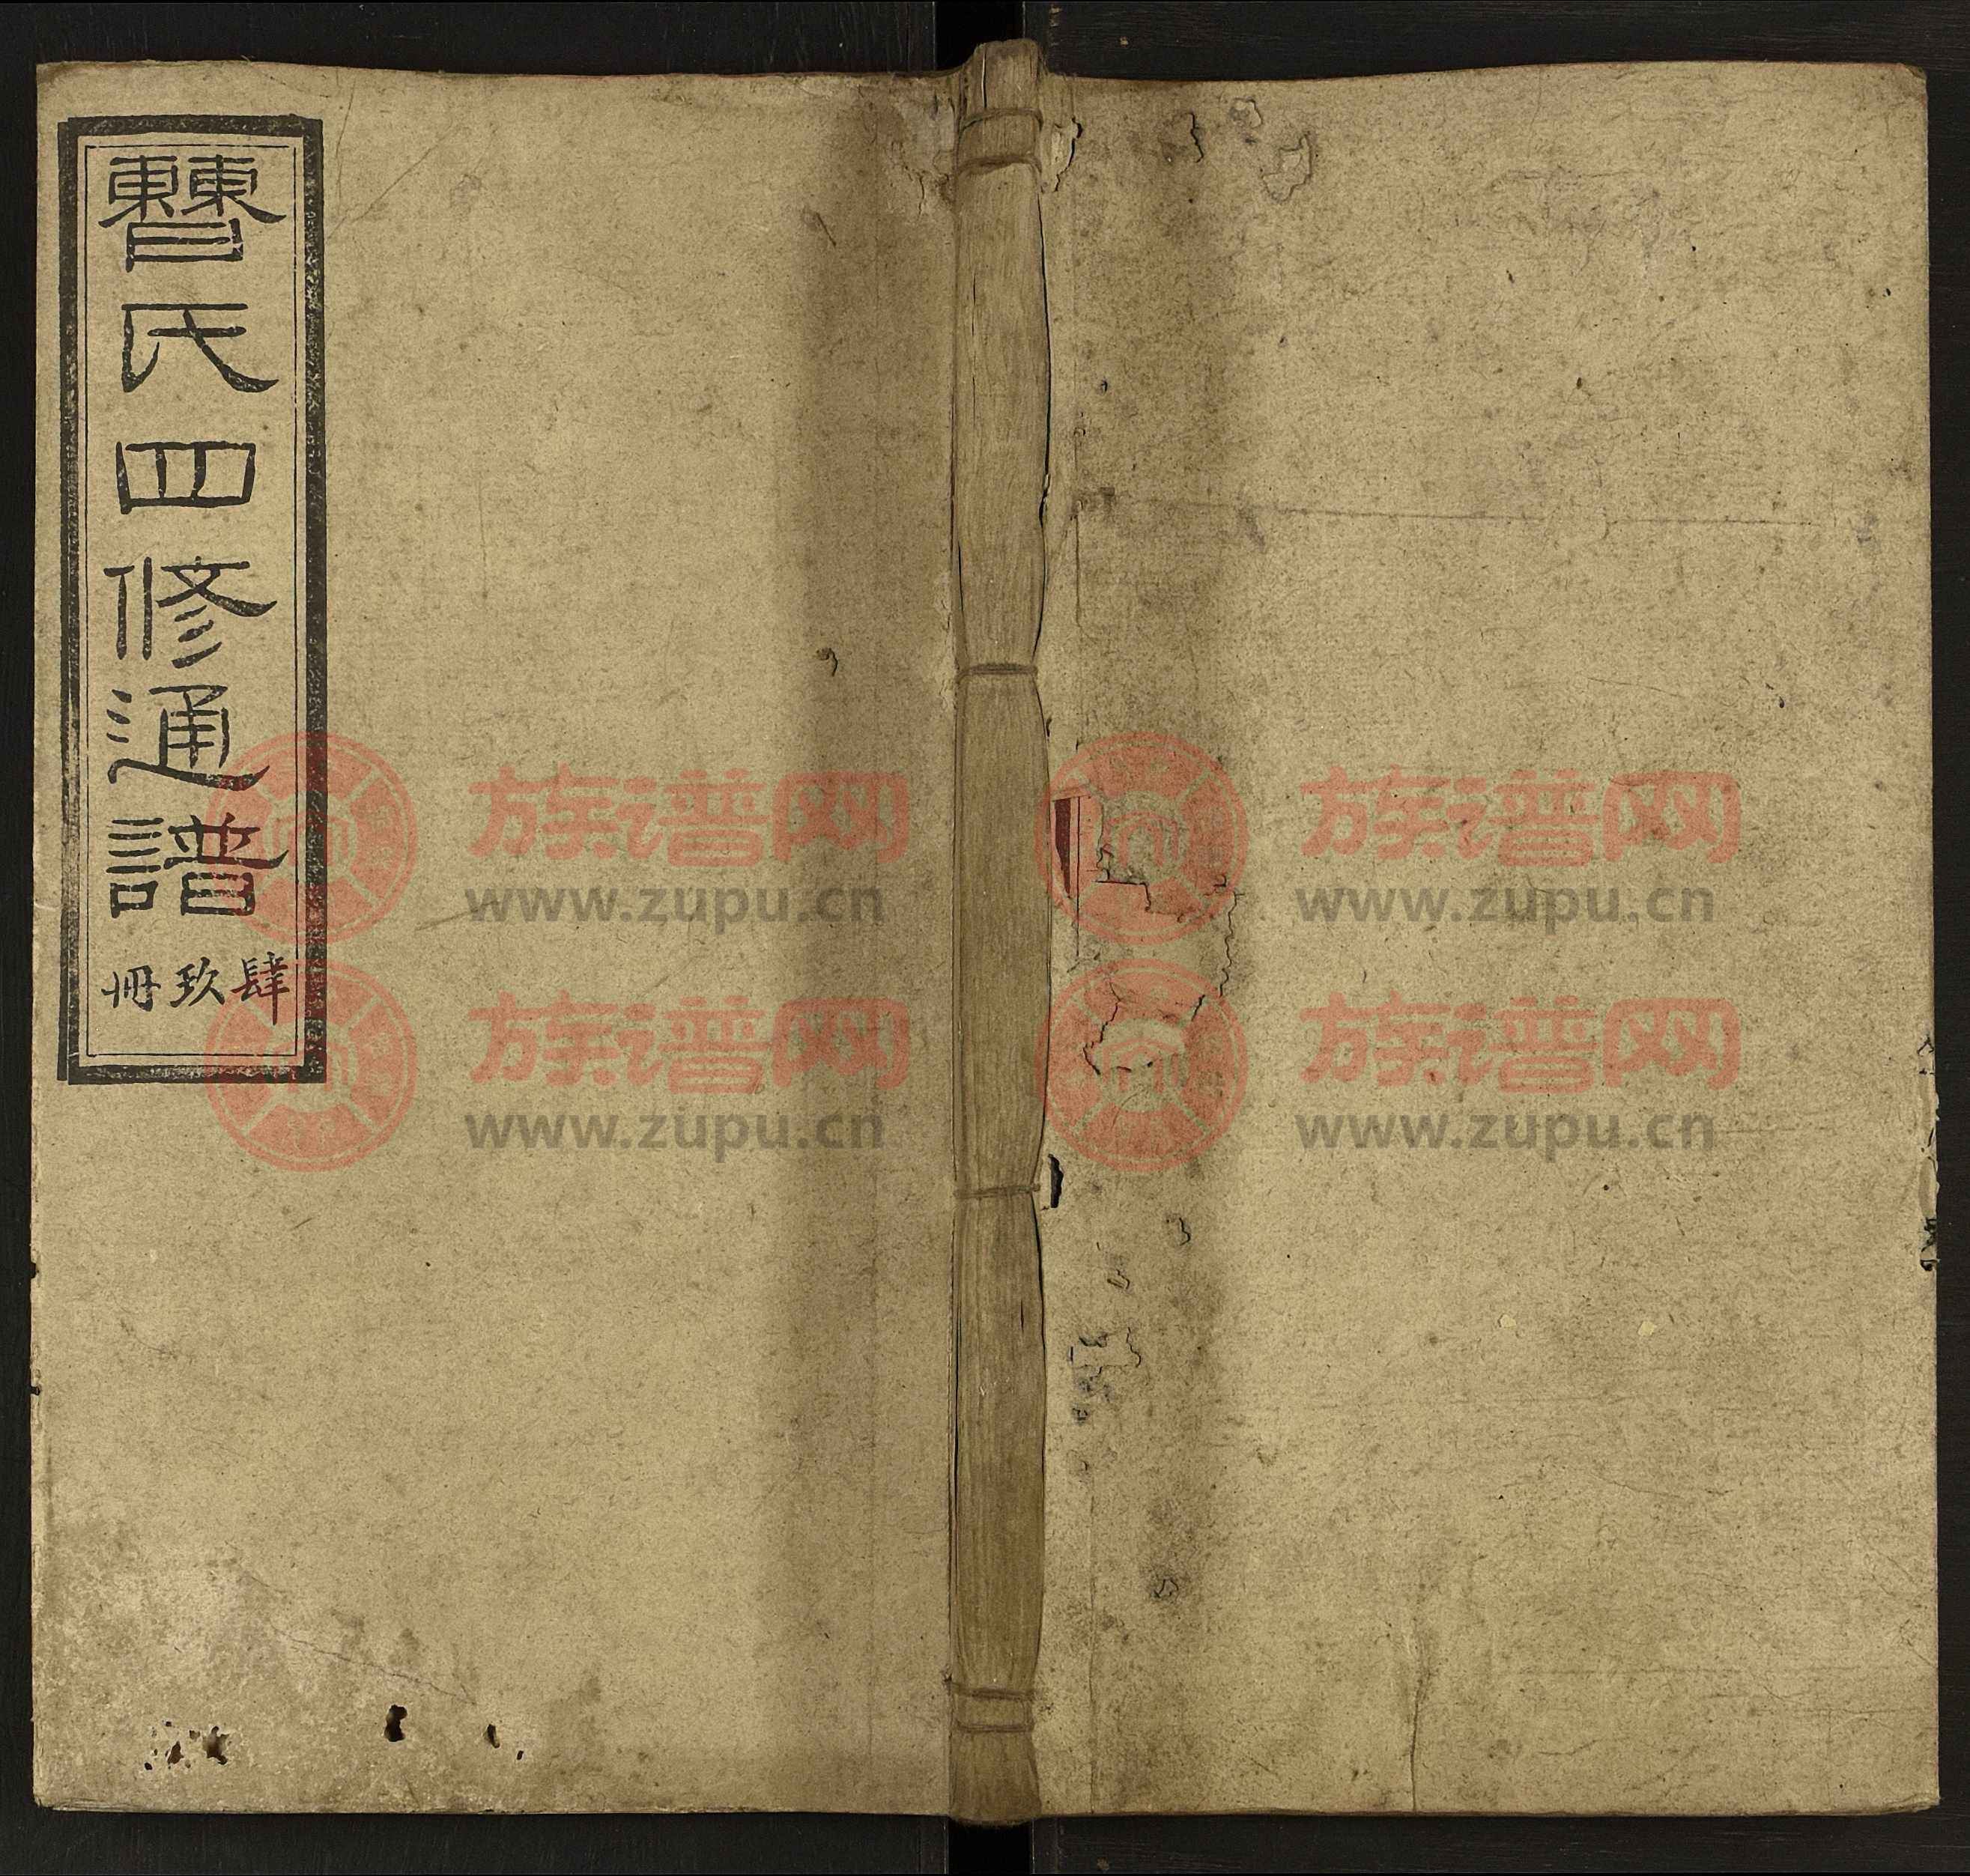 曹氏四修通譜
肆玖冊
族谱网
www.zupu.cn
族谱网
www.zupu.cn
族谱网
www.zupu.cn
族谱网
www.zupu.cn